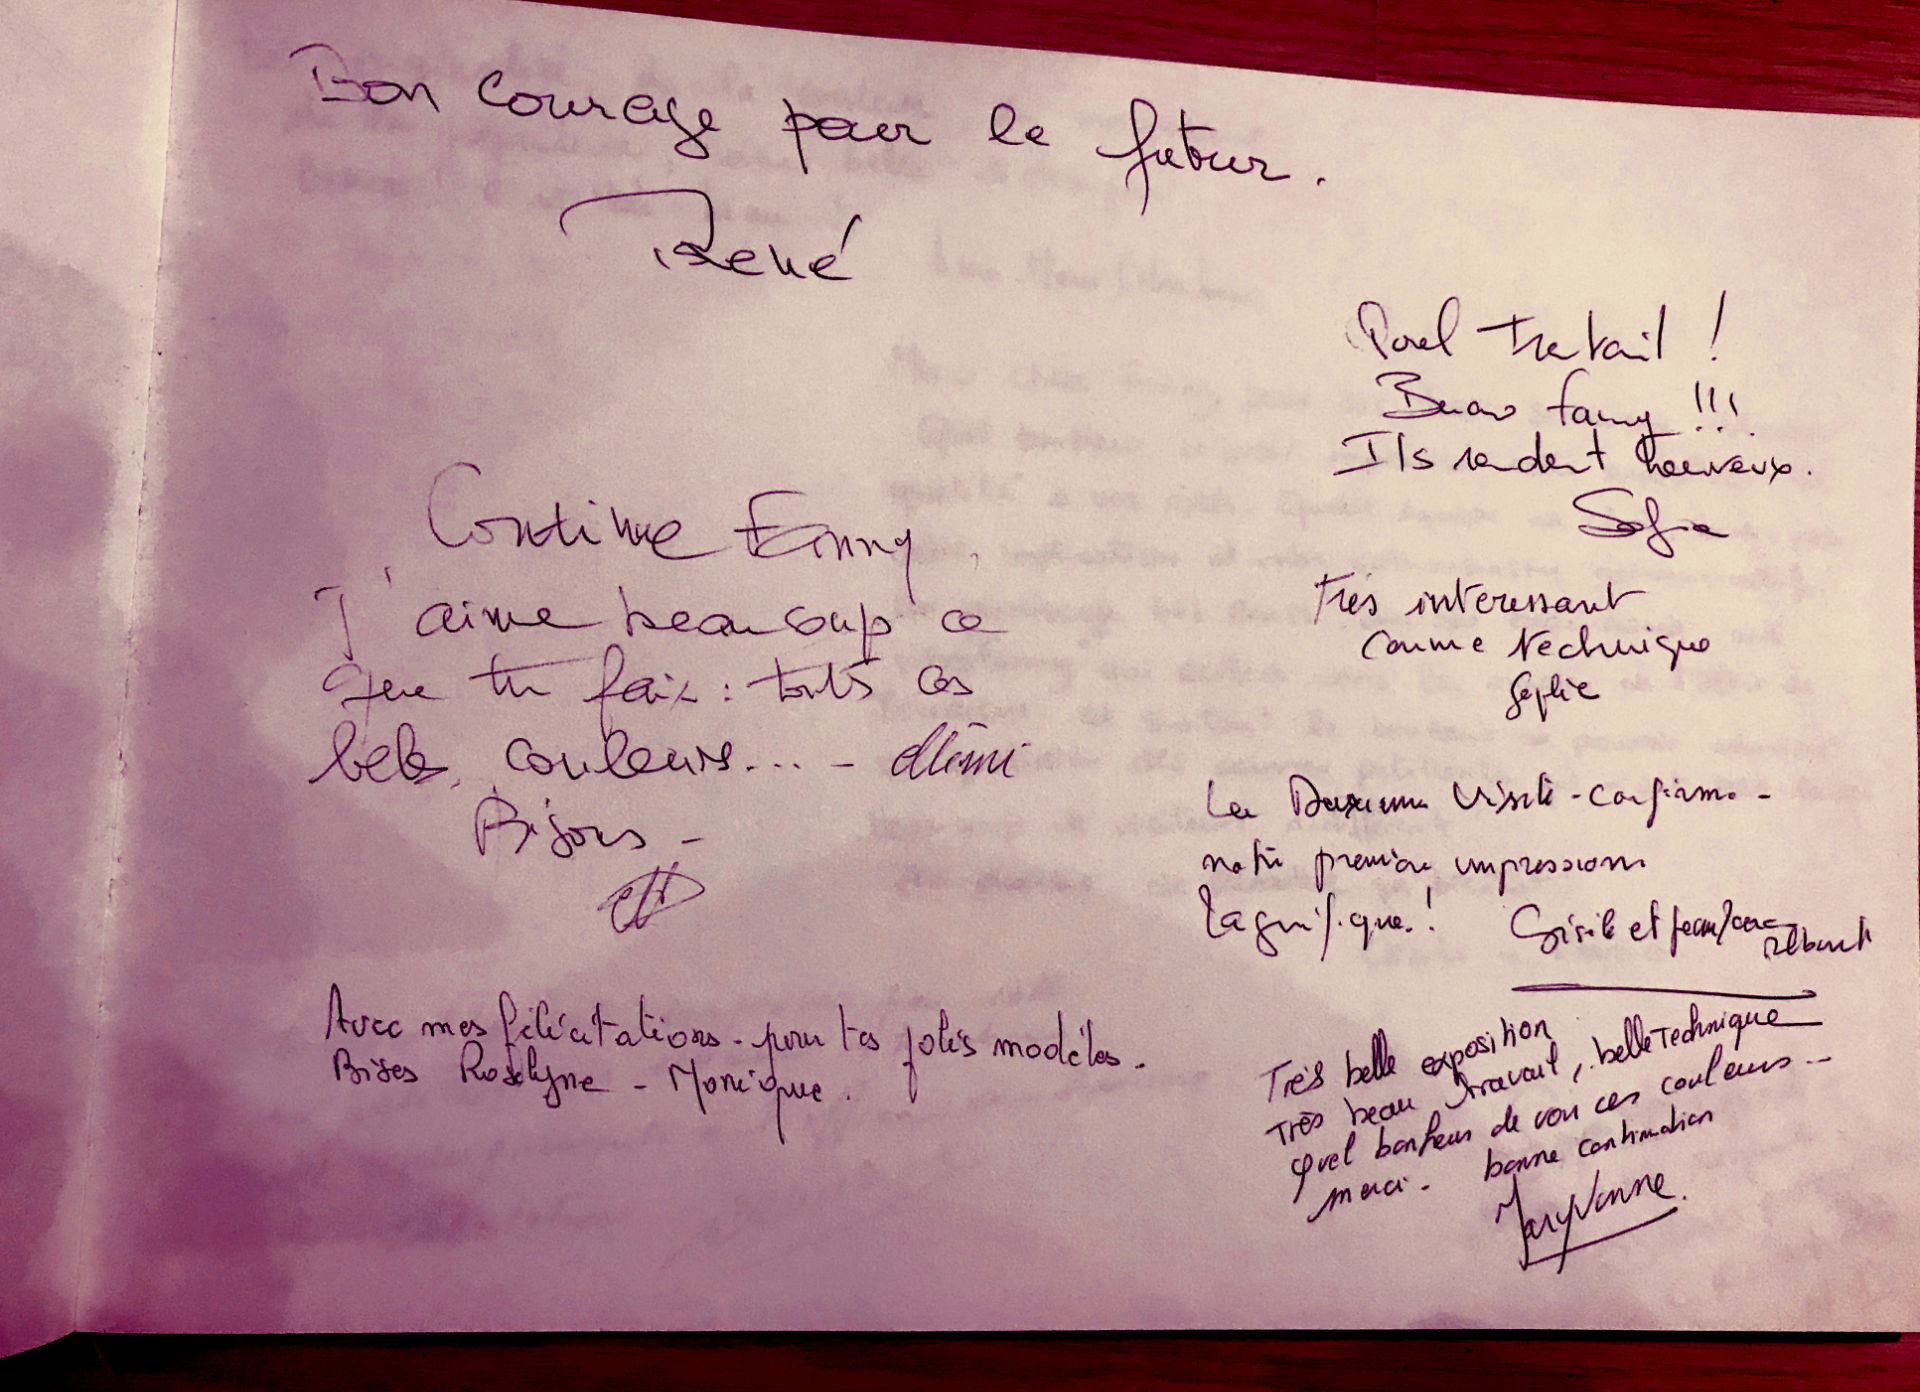 Bon courage pour le futur.
René
Quel travail !
Bravo Fanny !!!
Ils rendent heureux.
Sofia
Continue Fanny,
J'aime beaucoup ce
que tu fais : touts ces
bels, couleurs... -
Bisous -
Très interessant
comme technique
Sophie
La Deuxieme Visite - confirme -
notre première impression
Magnifique ! Gisèle et Jean
Avec mes félicitations - pour tes jolis modèles.
Bises Roselyne - Monique.
Très belle exposition
Très beau travail, belle Technique
quel bonheur de voir ces couleurs...
merci - bonne continuation
Maryvonne.